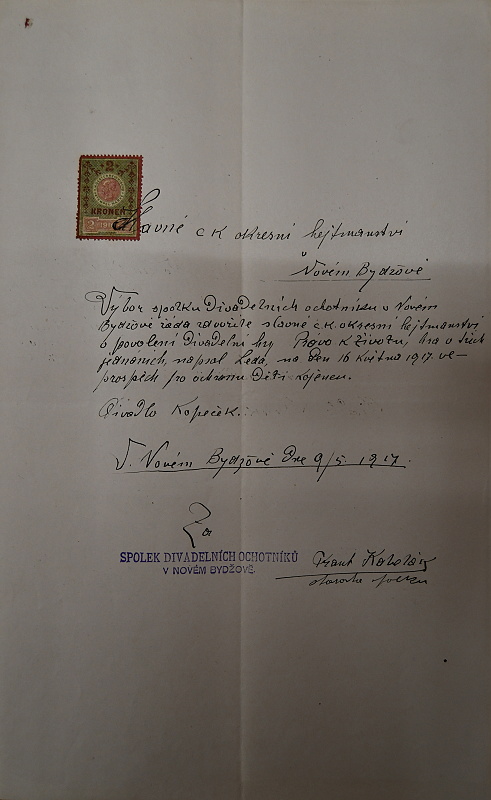 2
KRONEN
Slavné c k okresní hejtmanství
v Novém Bydžově
Výbor spolku Divadelních ochotníku v Novém
Bydžově žáda zdvořile slavné c.k. okresní hejtmanství
o povolení Divadelní hry Právo k životu, hra o třech
jednaních, napsal Leda, na den 16 Května 1917. ve-
prospěch pro ochranu Dětí Kojencu.
Divadlo Kopeček.
V. Novém Bydžově Dne 9/5. 1917.
Za
SPOLEK DIVADELNÍCH OCHOTNÍKŮ
V NOVÉM BYDŽOVĚ.
Frant
starosta spolku